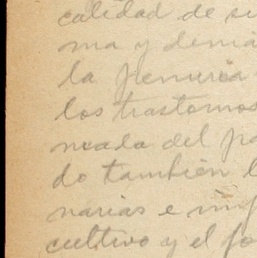 calidad de su
ma y demá
la penuria
los trastornos
ncado del pa
do también l
narias e imp
cultivo y el fo